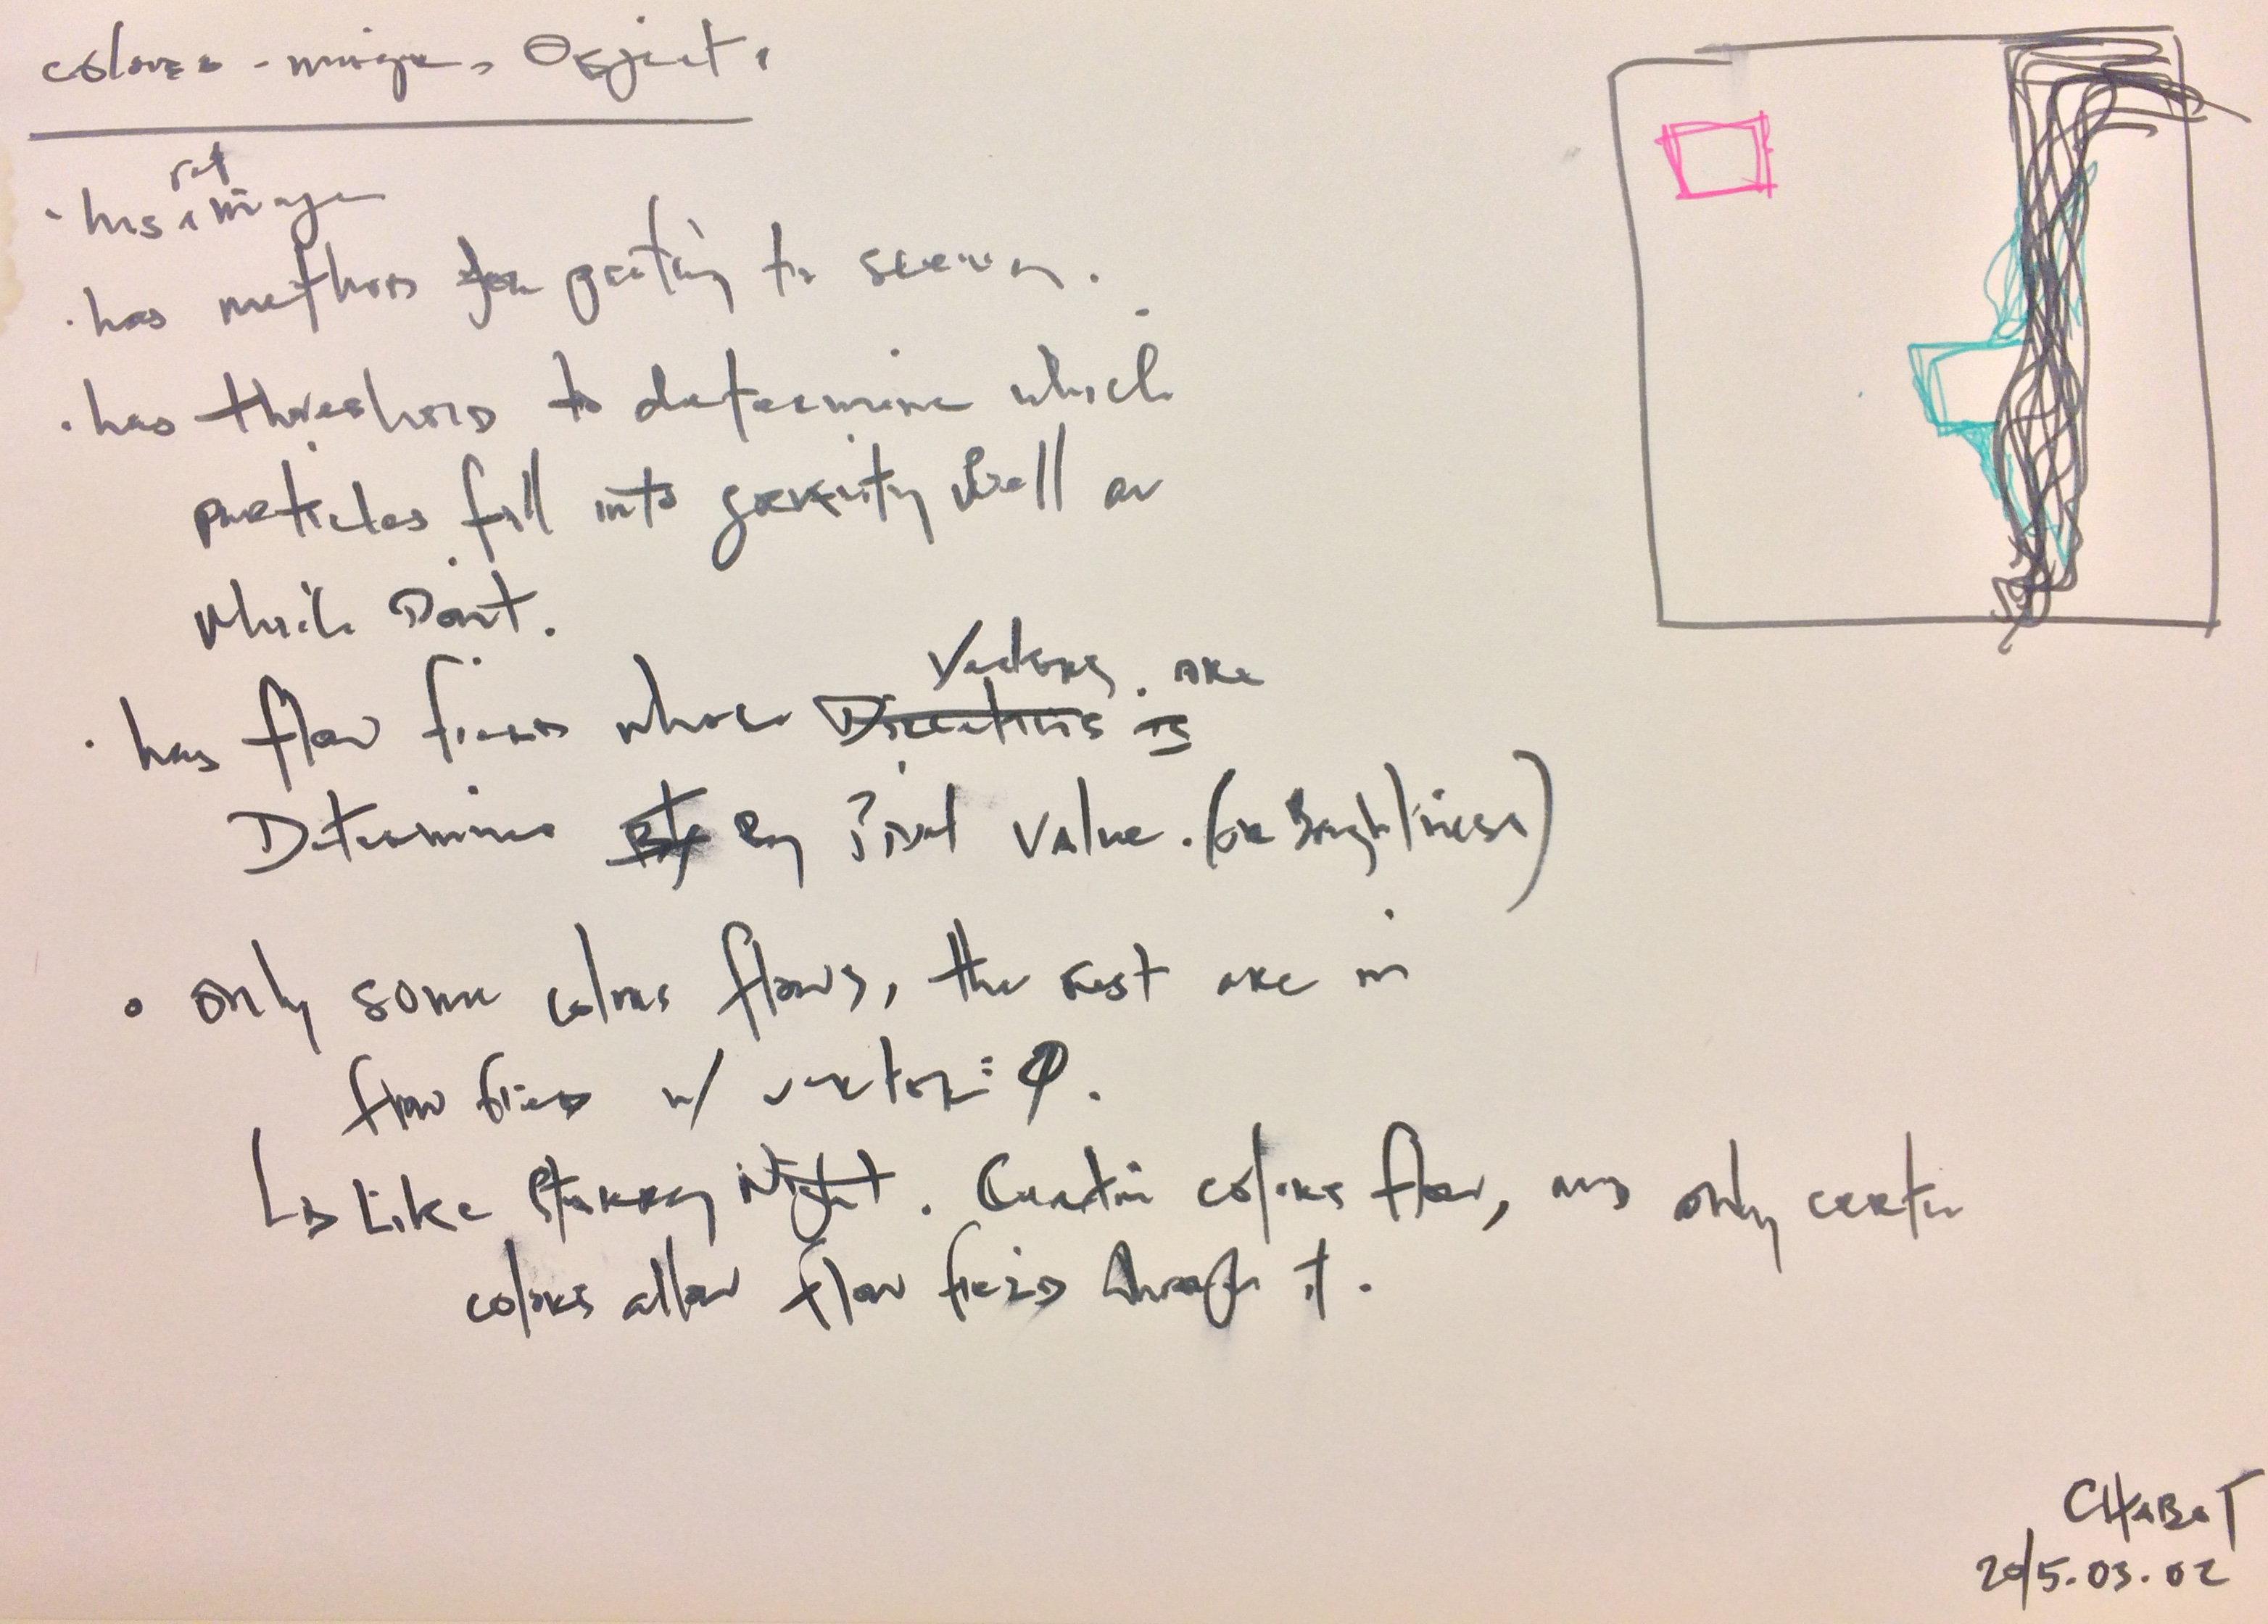 colored-image, Object.
· has ref image
· has methods for getting to screen.
· has thresholds to determine which
particles fall into gravity well or
which Don't.
· has flow fields whose Directions Vectors is are
Determined By By Pixel Value. (or Brightness)
• only some colors flows, the rest are in
flow field w/ vector = 0.
↳ Like Starry Night. Certain colors flow, and only certain
colors allow flow fields through it.
CHABOT
2015.03.02